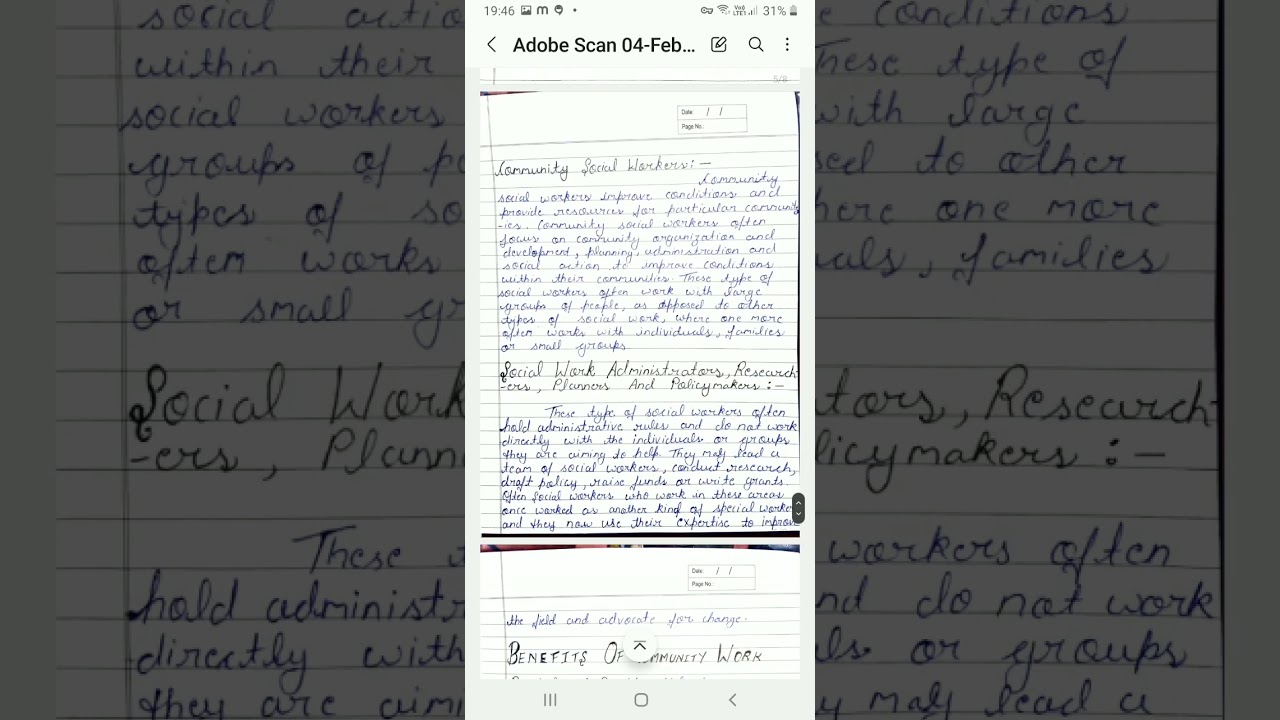 19:46 31%
Adobe Scan 04-Feb...
5/8
Date: / /
Page No.:
Community Social Workers:-
Community
social workers improve conditions and
provide resources for particular communit
-ies. Community social workers often
focus on community organization and
development, planning, administration and
social action to improve conditions
within their communities. These type of
social workers often work with large
groups of people, as opposed to other
types of social work, where one more
often works with individuals, families
or small groups.
Social Work Administrators, Research-
-ers, Planners And Policymakers:-
These type of social workers often
hold administrative rules and do not work
directly with the individuals or groups
they are aiming to help. They may lead a
team of social workers, conduct research,
draft policy, raise funds or write grants.
Often social workers who work in these areas
once worked as another kind of special worker
and they now use their expertise to improve
Date: / /
Page No.:
the field and advocate for change.
BENEFITS OF COMMUNITY WORK